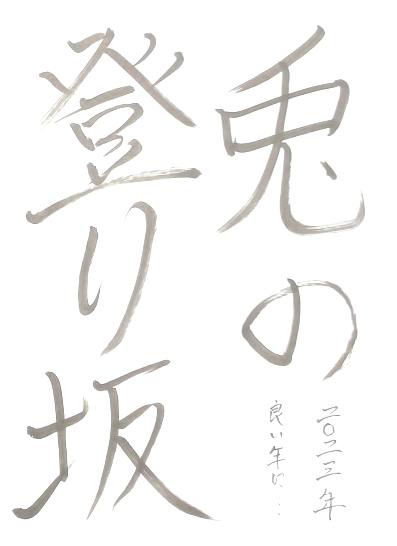 兎の
登り坂
二〇二三年
良い年に…